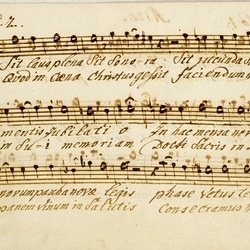 2.
Sit laus plena Sit Sono ra Sit jucunda
Quod in Cæna Christus gessit faciendum
mentis jubi lati o In hac mensa no
in su i memoriam Docti sacris in
novum pascha novæ legis phase vetus t
panem vinum in Salutis Consecramus